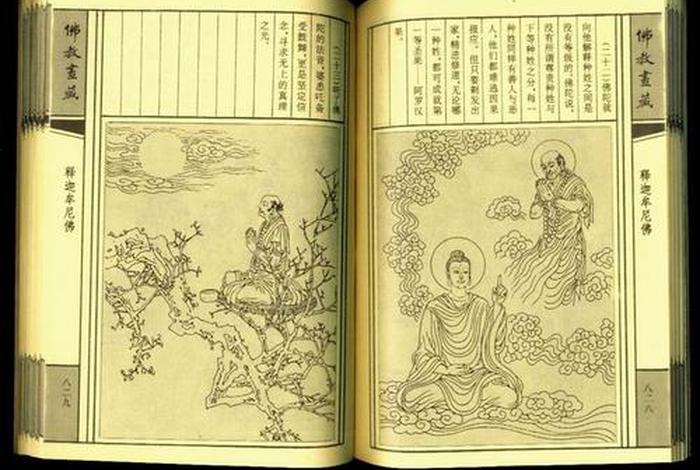 佛教畫藏
釋迦牟尼佛
八二八
（二十二）佛陀就
向他解释种姓之间是
没有等级的。佛陀说，
没有所谓尊贵种姓与
下等种姓之分，每一
种姓同样有善人与恶
人，他们都难逃因果
报应。但只要剃发出
家，精进修道，无论哪
一种姓，都可成就第
一等圣果——阿罗汉
果。
（二十三）听了佛
陀的法音，婆悉吒备
受鼓舞，更是坚定信
念，寻求无上的真理
之光。
佛教畫藏
釋迦牟尼佛
八二九